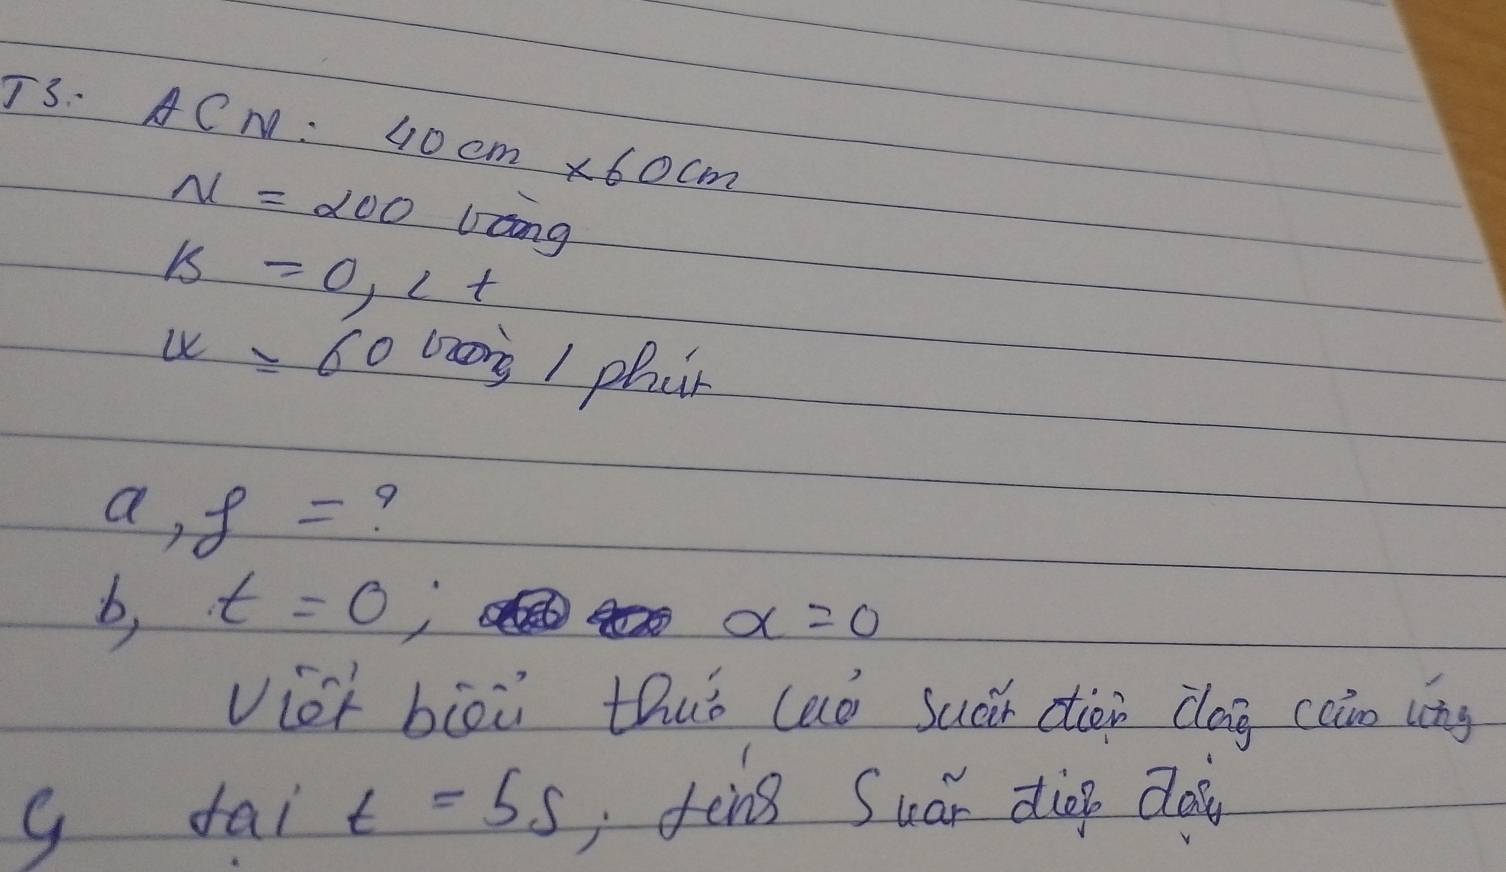 T3: HCN: 40cm x 60cm
N = 200 vòng
B = 0,2 t
ω = 60 vòng / phút
a, f = ?
b, t = 0; α = 0
Viết biểu thức của suất điện động cảm ứng
c, tại t = 5s, tính suất điện động